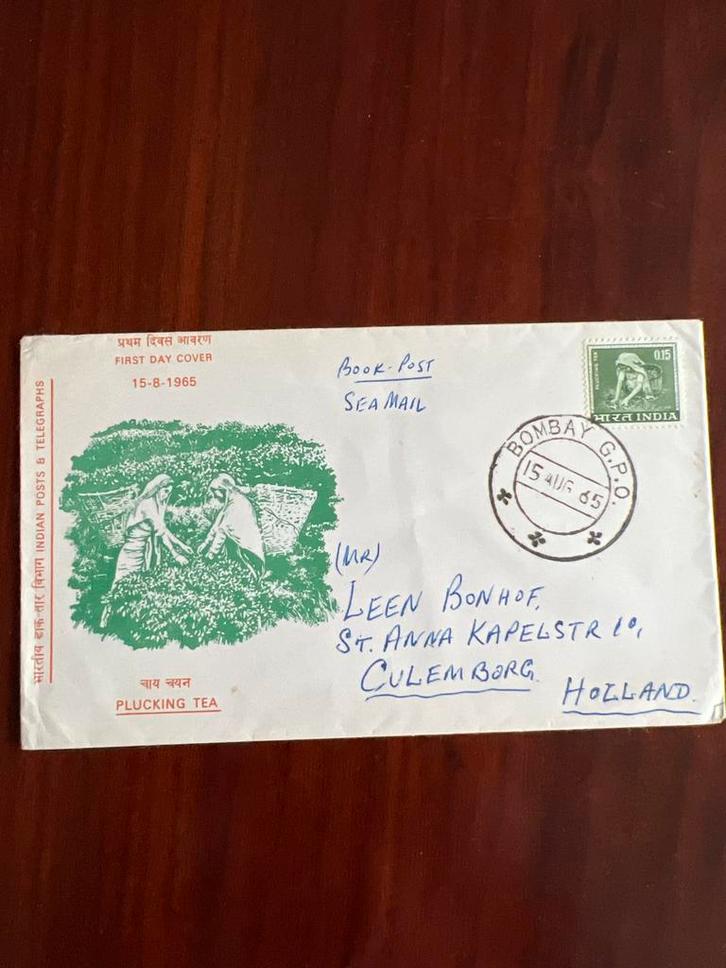 प्रथम दिवस आवरण
FIRST DAY COVER
15-8-1965
भारतीय डाक-तार विभाग INDIAN POSTS & TELEGRAPHS
चाय चयन
PLUCKING TEA
BOOK-POST
SEA MAIL
PLUCKING TEA
0.15
भारत INDIA
BOMBAY G.P.O.
15 AUG 65
(MR)
LEEN BONHOF,
ST. ANNA KAPELSTR 10,
CULEMBORG.
HOLLAND.